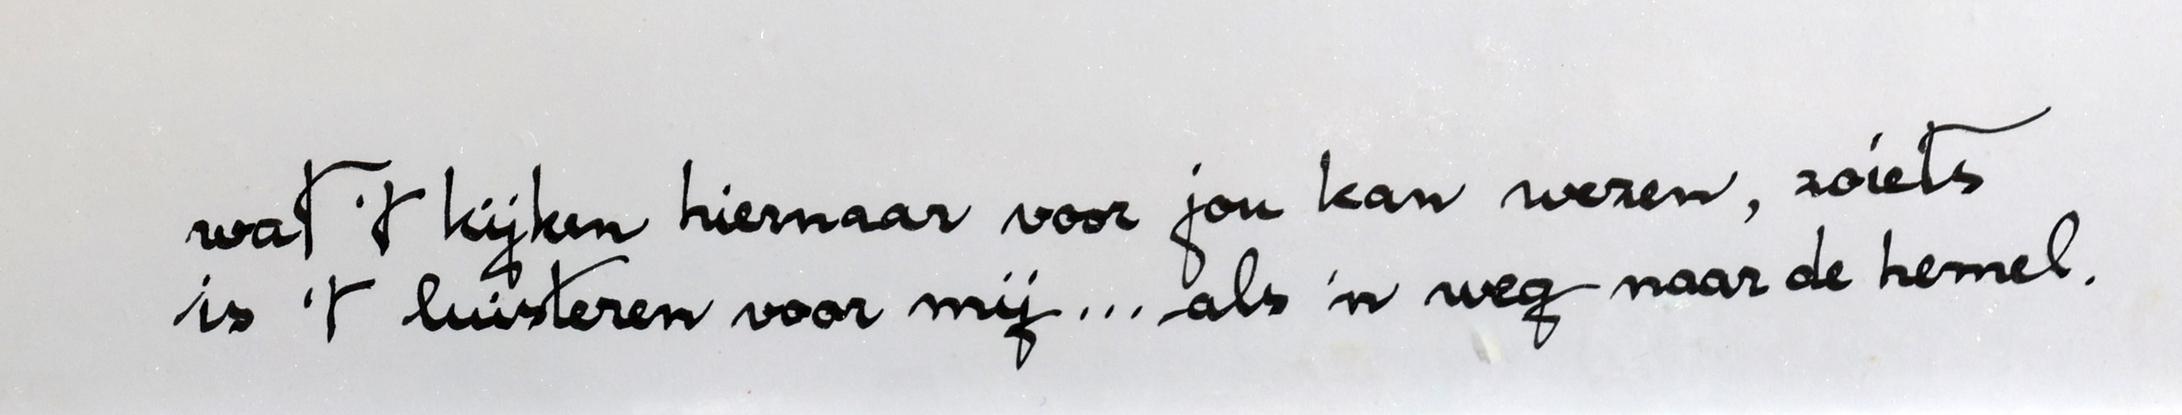 wat 't kijken hiernaar voor jou kan wezen, zoiets
is 't luisteren voor mij... als 'n weg naar de hemel.